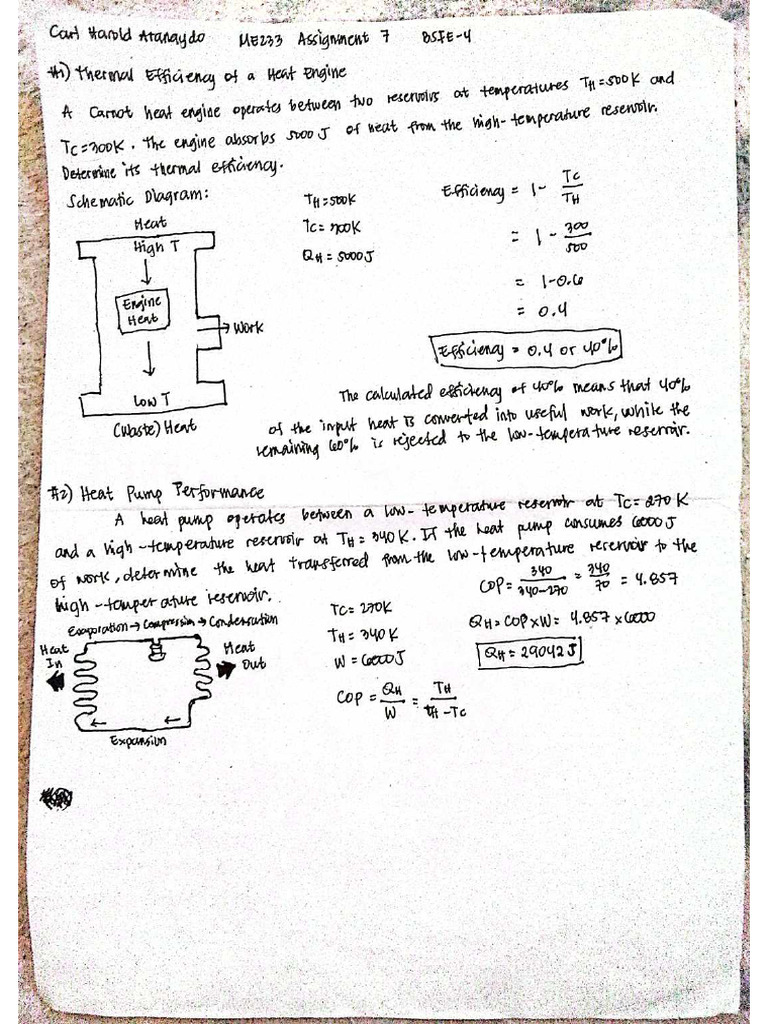 Carl Harold Atanaydo ME233 Assignment 7 BSIE-4
#1) Thermal Efficiency of a Heat Engine
A Carnot heat engine operates between two reservoirs at temperatures TH=500K and
TC=300K. The engine absorbs 5000 J of heat from the high-temperature reservoir.
Determine its thermal efficiency.
Schematic Diagram:
Heat
High T
Engine
Heat
→ Work
Low T
(Waste) Heat
TH=500K
TC=300K
QH=5000J
Efficiency = 1 - TC/TH
= 1 - 300/500
= 1-0.6
= 0.4
Efficiency = 0.4 or 40%
The calculated efficiency of 40% means that 40%
of the input heat is converted into useful work, while the
remaining 60% is rejected to the low-temperature reservoir.
#2) Heat Pump Performance
A heat pump operates between a low-temperature reservoir at TC=270 K
and a high-temperature reservoir at TH=340K. If the heat pump consumes 6000 J
of work, determine the heat transferred from the low-temperature reservoir to the
high-temperature reservoir.
Evaporation → Compression → Condensation
Heat
In
Heat
Out
Expansion
TC=270K
TH=340K
W=6000J
COP = QH/W = TH/TH-TC
COP = 340/340-270 = 340/70 = 4.857
QH=COP×W= 4.857 ×6000
QH=29042J